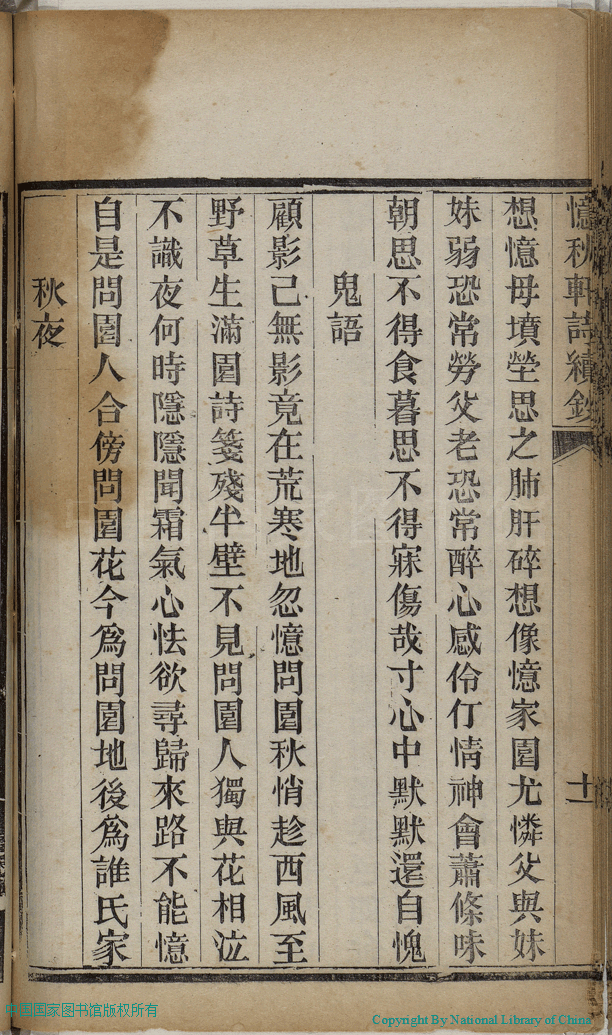 憶秋軒詩續鈔
十一
想憶母墳塋思之肺肝碎想像憶家園尤憐父與妹
妹弱恐常勞父老恐常醉心感伶仃情神會蕭條味
朝思不得食暮思不得寐傷哉寸心中默默還自愧
鬼語
顧影己無影竟在荒寒地忽憶問園秋悄趁西風至
野草生滿園詩箋殘半壁不見問園人獨與花相泣
不識夜何時隱隱聞霜氣心怯欲尋歸來路不能憶
自是問園人合傍問園花今為問園地後為誰氏家
秋夜
中国国家图书馆版权所有
Copyright By National Library of China